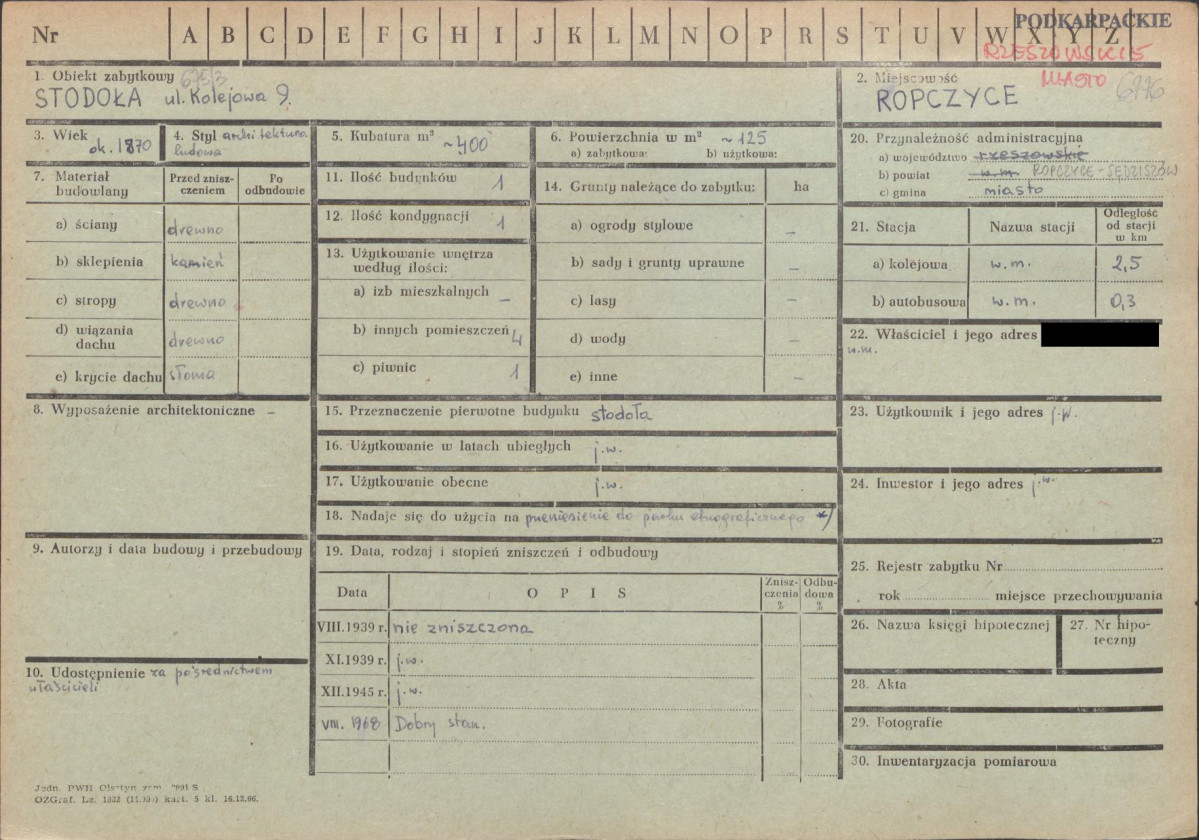 Nr A B C D E F G H I J K L M N O P R S T U V W X Y Z
PODKARPACKIE
RZESZOWSKIE
MIASTO
1. Obiekt zabytkowy 675/3
STODOŁA ul. Kolejowa 9.
2. Miejscowość
ROPCZYCE
3. Wiek
ok. 1870
4. Styl architektura
ludowa
5. Kubatura m³
~400
6. Powierzchnia w m² ~125
a) zabytkowa: b) użytkowa:
7. Materiał budowlany
Przed zniszczeniem
Po odbudowie
a) ściany drewno
b) sklepienia kamień
c) stropy drewno
d) wiązania dachu drewno
e) krycie dachu słoma
8. Wyposażenie architektoniczne –
9. Autorzy i data budowy i przebudowy
10. Udostępnienie za pośrednictwem
właścicieli
11. Ilość budynków 1
12. Ilość kondygnacji 1
13. Użytkowanie wnętrza
według ilości:
a) izb mieszkalnych –
b) innych pomieszczeń 4
c) piwnic 1
14. Grunty należące do zabytku: ha
a) ogrody stylowe –
b) sady i grunty uprawne –
c) lasy –
d) wody –
e) inne –
15. Przeznaczenie pierwotne budynku stodoła
16. Użytkowanie w latach ubiegłych j.w.
17. Użytkowanie obecne j.w.
18. Nadaje się do użycia na przeniesienie do parku etnograficznego */
19. Data, rodzaj i stopień zniszczeń i odbudowy
Data
O P I S
Zniszczenia %
Odbudowa %
VIII.1939 r. nie zniszczona
XI.1939 r. j.w.
XII.1945 r. j.w.
VIII. 1968 Dobry stan.
20. Przynależność administracyjna
a) województwo rzeszowskie
b) powiat w.m. ROPCZYCE-SĘDZISZÓW
c) gmina miasto
21. Stacja
Nazwa stacji
Odległość
od stacji
w km
a) kolejowa w.m. 2,5
b) autobusowa w.m. 0,3
22. Właściciel i jego adres
w.m.
23. Użytkownik i jego adres j.w.
24. Inwestor i jego adres j.w.
25. Rejestr zabytku Nr
rok miejsce przechowywania
26. Nazwa księgi hipotecznej
27. Nr hipo-
teczny
28. Akta
29. Fotografie
30. Inwentaryzacja pomiarowa
Jedn. PWH Olsztyn zam.
OZGraf. Lz. kart. 5 kl. 16.12.66.